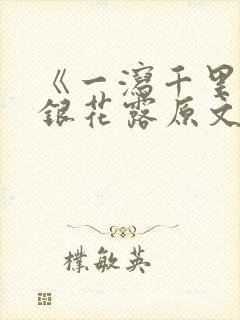 《一瀉千里
銀花露原文
樸敏英